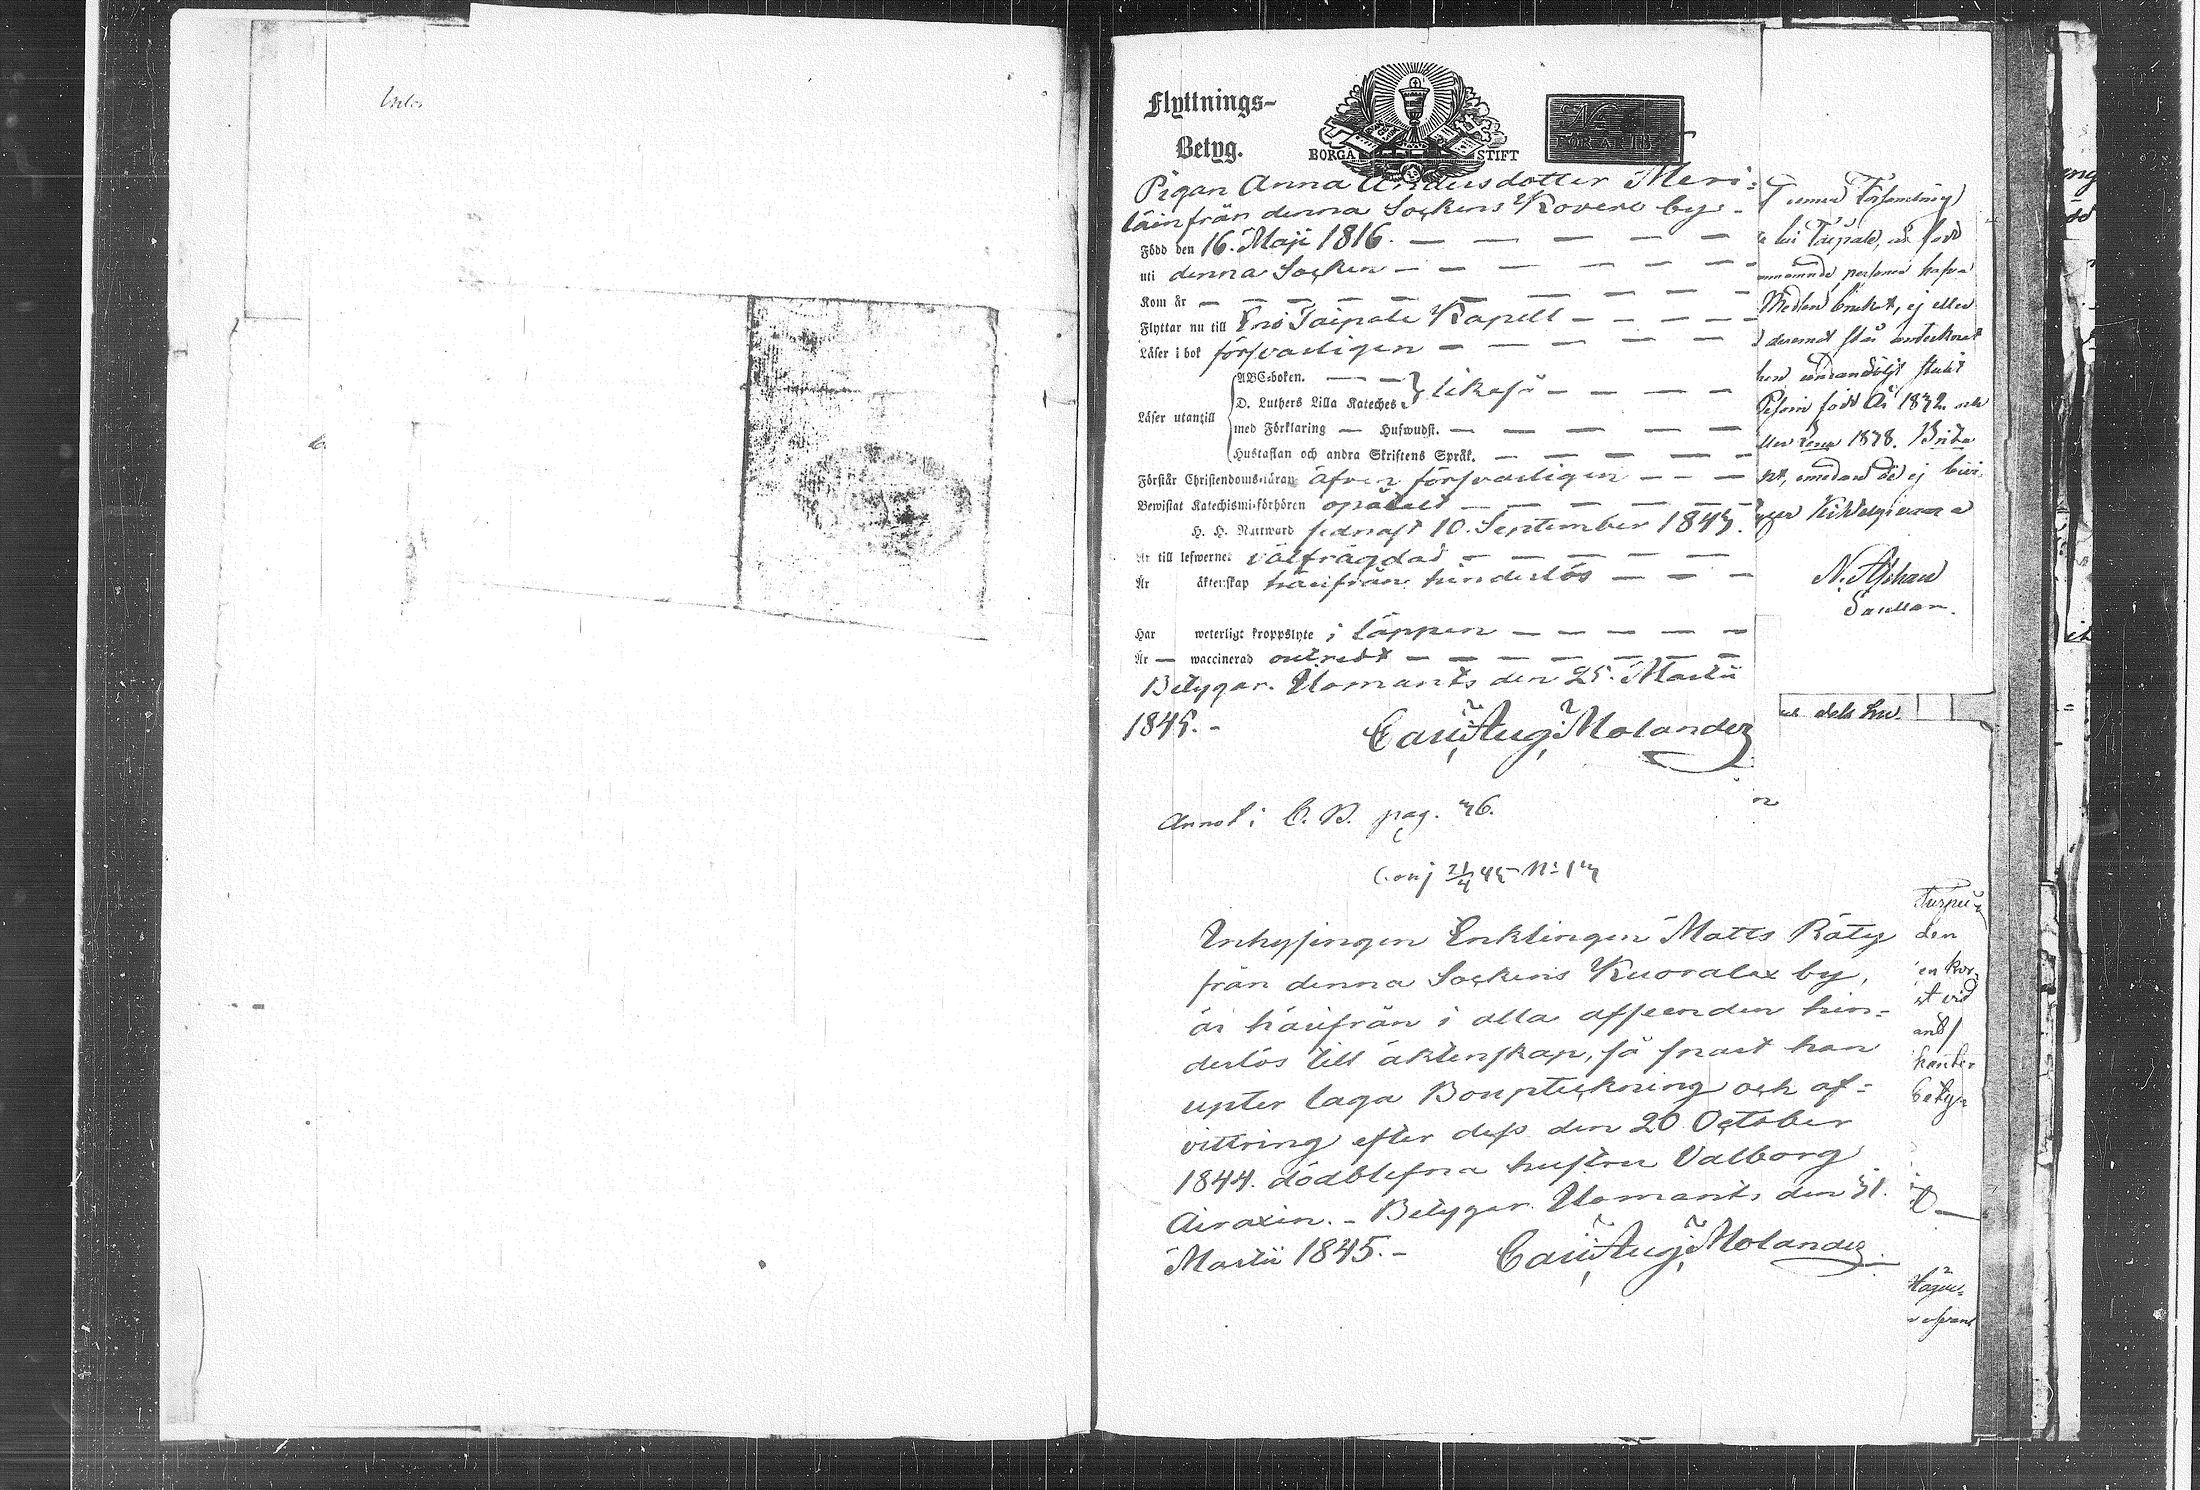 Flyttnings-
Betyg.
BORGÅ STIFT
Pigan Anna Andersdotter Meri-
läin från denna Sockens Kovero by. -
Född den 16. Maji 1816. -
uti denna Socken -
Kom år -
Flyttar nu till Eno Taipale Kapell -
Läser i bok försvarligen -
Läser utantill
ABC-boken. -
D. Luthers Lilla Kateches
likaså -
med Förklaring - Hufwudst. -
Hustaflan och andra Skriftens Språk. -
Förstår Christendoms-läran äfven försvarligen -
Bewistat Katechismi-förhören
H. H. Nattward sednast 10. September 1843.
Är till lefwernet välfrägdad -
Är äktenskap härifrån hinderlös -
Har weterligt kroppslyte i läppen -
Är - waccinerad outredt -
Betygar. Ilomants den 25. Martii
1845. -
Carl Aug. Molander
Annot i C. B. pag. 36.
Conj 21/4 45 No 13
Inhysingen Enklingen Matts Räty
från denna Sockens Kuoralax by,
är härifrån i alla afseenden hin-
derlös till äktenskap, så snart han
upter laga Bouptekning och af-
vittring efter dess den 20 October
1844. dödblefna hustru Valborg
Airaxin. - Betygar. Ilomants den 31.
Martii 1845. -
Carl Aug. Molander
Församling
Taipale, född
personer hafva
Meslend ej eller
deremot står antecknadt
född År 1832 och
1838. Brita
ej
den
vid